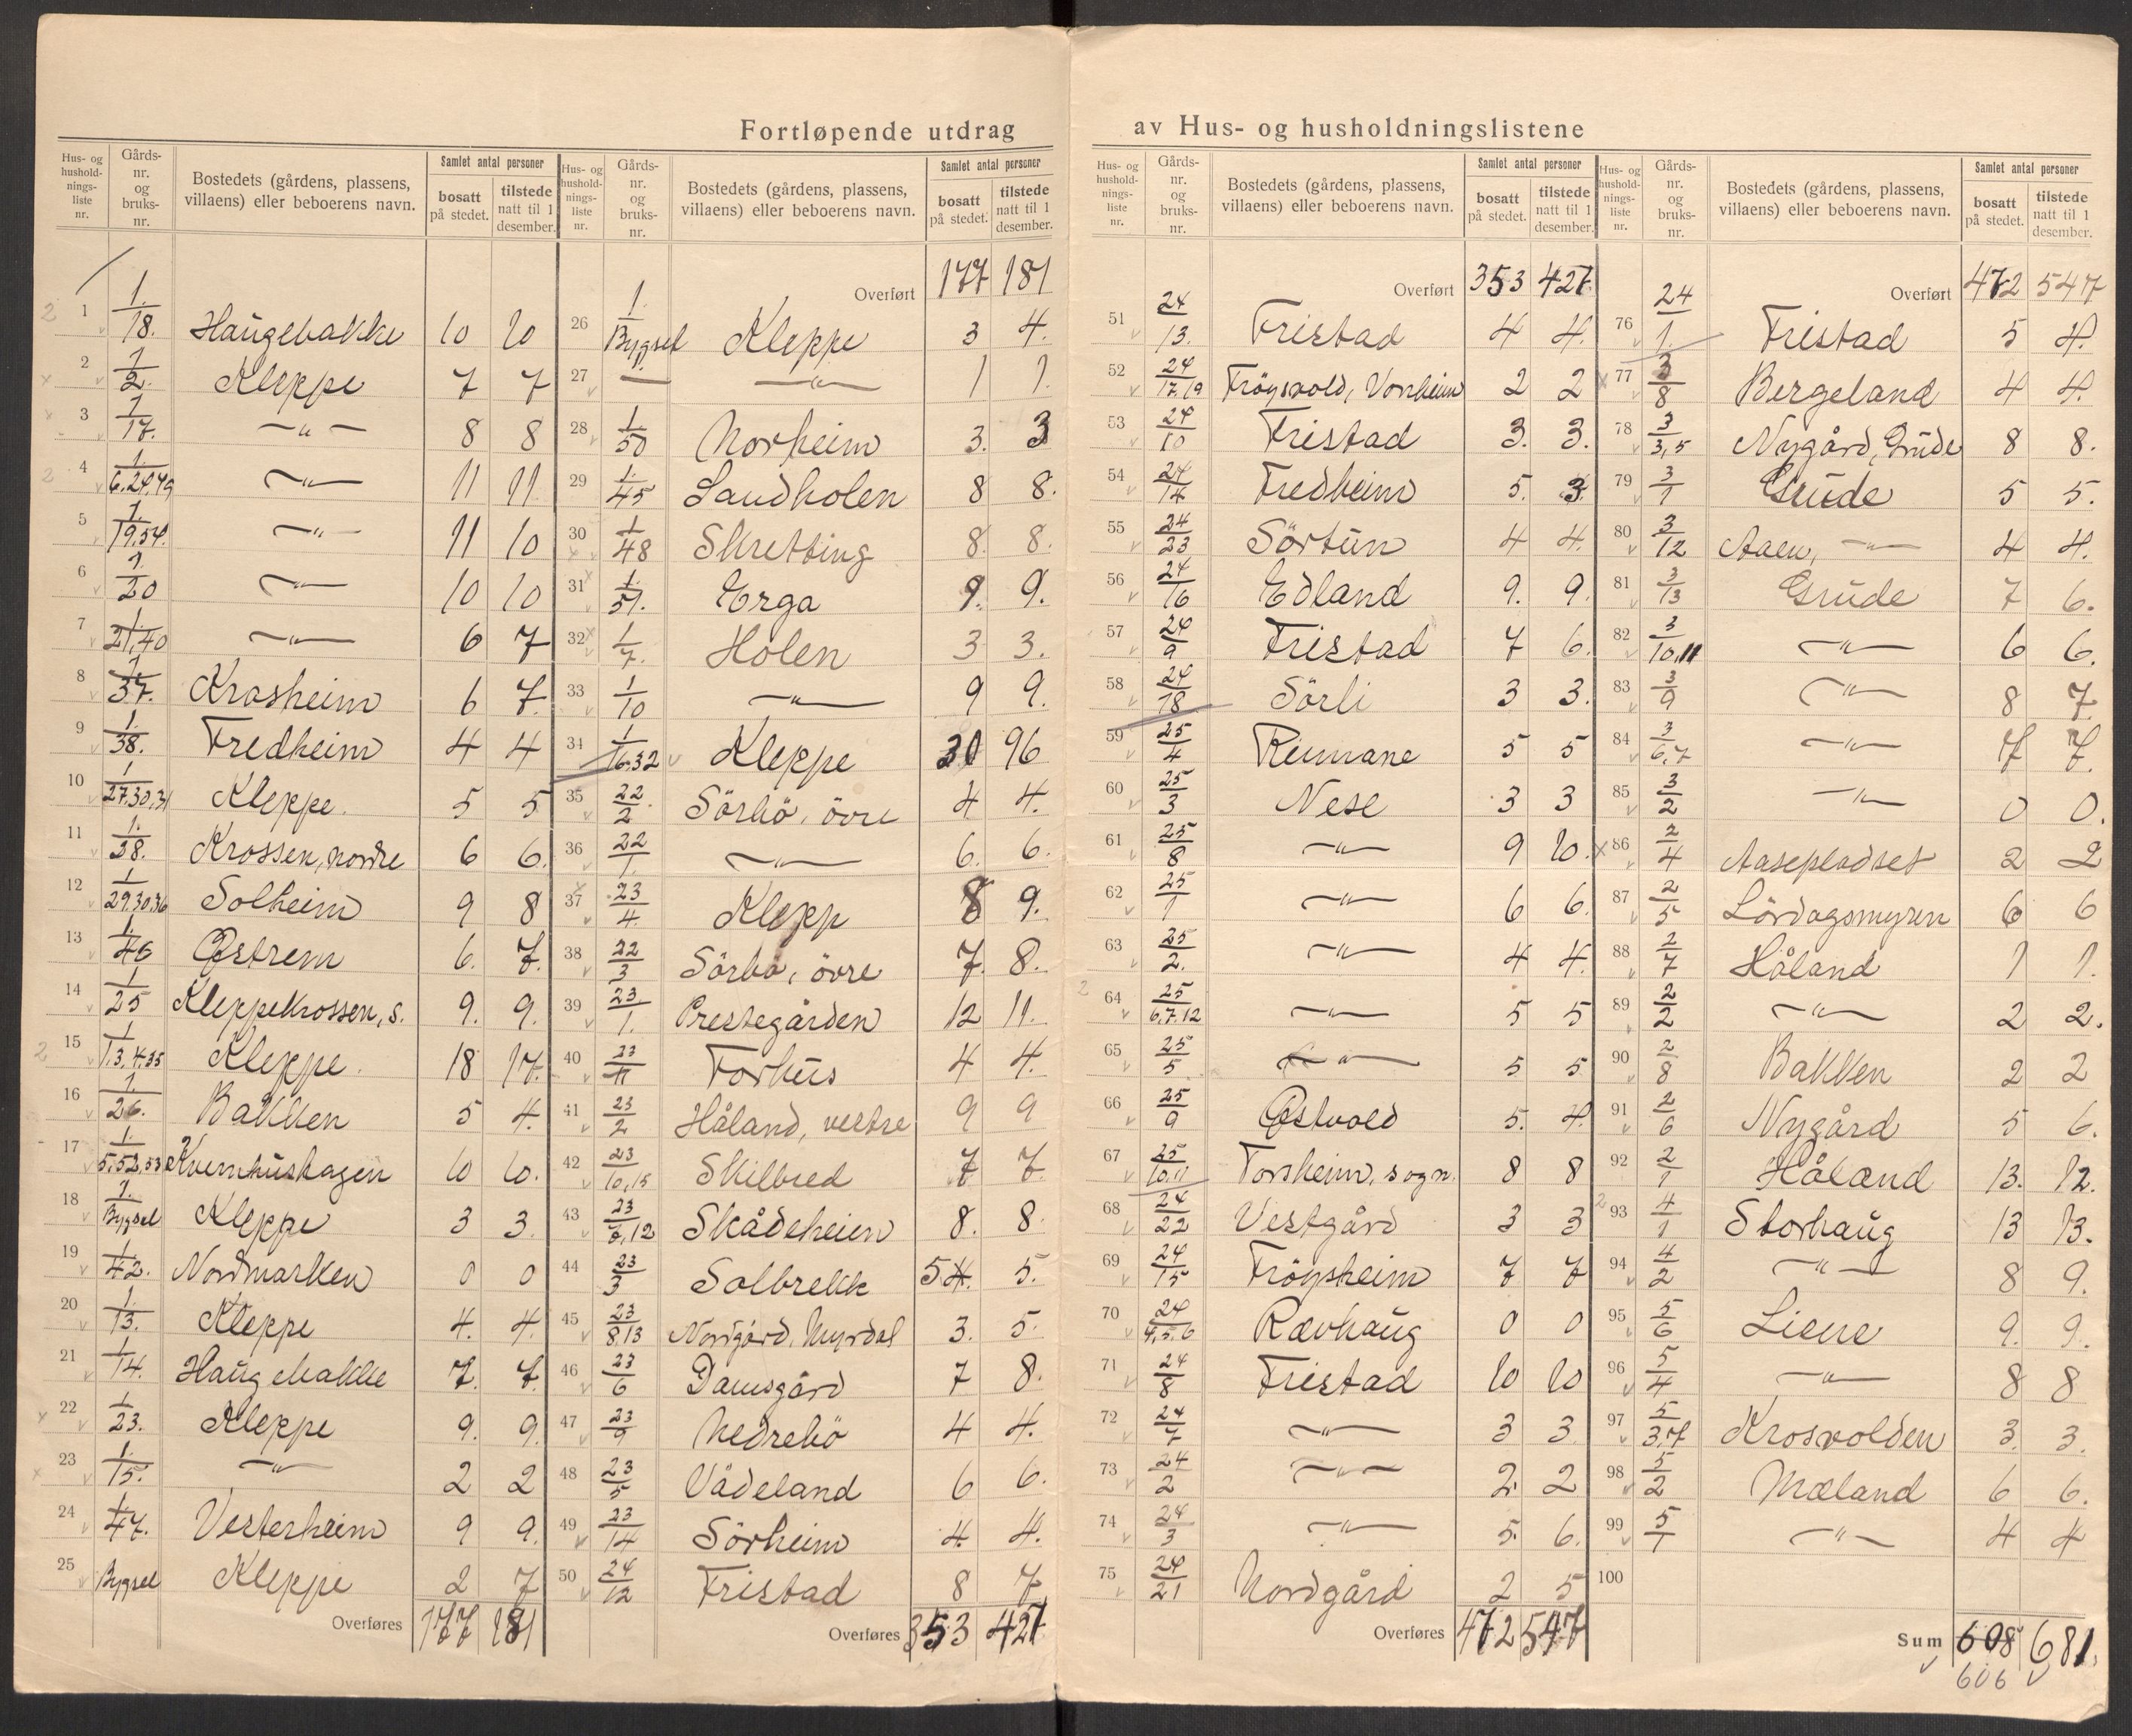 Fortløpende utdrag av Hus- og husholdningslistene
Hus- og husholdningsliste nr. | Gårdsnr. og bruksnr. | Bostedets (gårdens, plassens, villaens) eller beboerens navn. | Samlet antal personer bosatt på stedet. | tilstede natt til 1 desember.
1 1/18. Haugebakke 10 10
2 1/2. Kleppe 7 7
3 1/17. —"— 8 8
4 1/6.24.49 —"— 11 11
5 1/19.54. —"— 11 10
6 1/20 —"— 10 10
7 1/21.40 —"— 6 7
8 1/37. Krosheim 6 7.
9 1/38. Fredheim 4 4
10 1/27.30.31 Kleppe. 5 5
11 1/38. Krossen, nordre 6 6.
12 1/29.30.36 Solheim 9 8
13 1/46 Østrem 6. 7.
14 1/25 Kleppekrossen, s. 9. 9.
15 1/1.3.4.35 Kleppe. 18 17.
16 1/26. Bakken 5 4.
17 1/5.52.53 Kvernhushagen 10 10.
18 1/Bygsel Kleppe 3 3.
19 1/42. Nordmarken 0 0
20 1/13. Kleppe 4. 4.
21 1/14. Haugebakke 7. 7.
22 1/23. Kleppe 9. 9.
23 1/15. —"— 2 2
24 1/47. Vesterheim 9 9.
25 Bygsel Kleppe 2 7
Overføres 177 181
Overført 177 181
26 1/Bygsel Kleppe 3 4.
27 — —"— 1 1.
28 1/50 Norheim 3. 3
29 1/45 Sandholen 8 8.
30 1/48 Skretting 8. 8.
31 1/51. Erga 9. 9.
32 1/7. Holen 3 3.
33 1/10 —"— 9 9.
34 1/16.32 Kleppe 30 96
35 22/2 Sörbö, övre 4 4.
36 22/1. —"— 6. 6.
37 23/4. Klepp 8 9.
38 22/3 Sörbö, övre 7. 8.
39 23/1. Prestegården 12 11.
40 23/11 Forhus 4 4.
41 23/2 Håland, vestre 9 9
42 23/10,15 Skilbred 7 7.
43 23/7,12 Skådeheien 8. 8.
44 23/3 Solbrekk 5 4. 5.
45 23/8.13 Nordgård, Myrdal 3. 5.
46 23/6 Damsgård 7 8.
47 23/9 Nedrebö 4 4.
48 23/5 Vådeland 6 6.
49 23/14 Sörheim 4. 4.
50 24/12 Fristad 8 7
Overføres 353 427
Overført 353 427.
51 24/13. Fristad 4 4.
52 24/17,19 Fröysvold, Vorsheim 2 2
53 24/10 Fristad 3. 3.
54 24/14 Fredheim 5. 3.
55 24/23 Sörtun 4 4.
56 24/16 Edland 9. 9.
57 24/9 Fristad 7 6.
58 24/18 Sörli 3 3.
59 25/4 Reimane 5 5
60 25/3 Nese 3 3
61 25/8 —"— 9 10.
62 25/1 —"— 6 6.
63 25/2. —"— 4 4.
64 25/6.7.12 —"— 5 5
65 25/5 —"— 5 5
66 25/9 Østvold 5. 4.
67 25/10.11 Torsheim, sogn. 8 8
68 24/22 Vestgård 3 3
69 24/15 Fröysheim 7 7
70 24/4,5,6 Rævhaug 0 0
71 24/8 Fristad 10 10
72 24/7 —"— 3 3
73 24/2 —"— 2. 2
74 24/3 —"— 5. 6.
75 24/21 Nordgård 2 5
Overføres 472 547
Overført 472 547
76 24/1. Fristad 5 4.
77 3/8 Bergeland 4 4.
78 3/3,5 Nygård, Grude 8 8.
79 3/1 Grude 5 5.
80 3/12 Aaen, —"— 4 4.
81 3/13 Grude 7 6.
82 3/10,11 —"— 6 6.
83 3/9 —"— 8 7.
84 3/6,7 —"— 7 7.
85 3/2 —"— 0 0.
86 2/4 Aasepladset 2 2
87 2/5 Lördagsmyren 6 6
88 2/7 Håland 1 1.
89 2/2 —"— 2 2.
90 2/8 Bakken 2 2
91 2/6 Nygård 5 6.
92 2/1 Håland 13. 12.
93 4/1 Storhaug 13 13.
94 4/2 —"— 8 9.
95 5/6 Liene 9. 9.
96 5/4 —"— 8 8
97 5/3.7 Krosvolden 3. 3.
98 5/2 Mæland 6 6.
99 5/1 —"— 4 4
100
Sum 608 681.
606